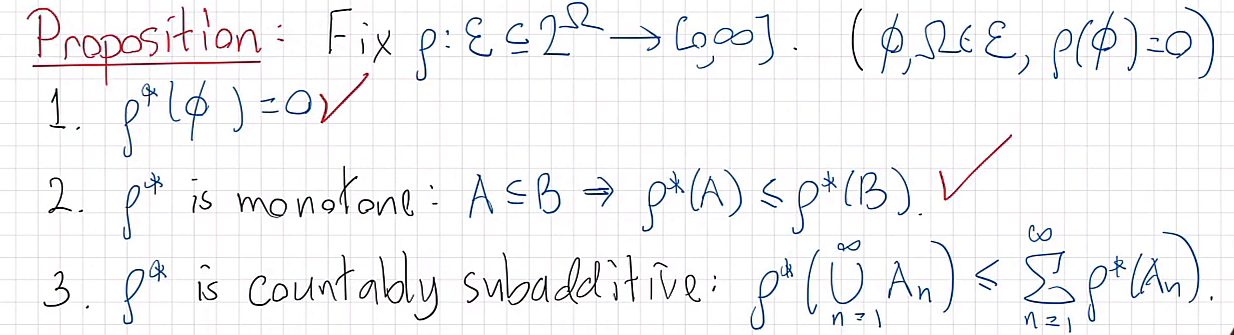 Proposition: Fix ρ: ℰ ⊆ 2^Ω → [0,∞]. (∅,Ω∈ℰ, ρ(∅)=0)
1. ρ*(∅)=0 ✓
2. ρ* is monotone: A ⊆ B ⇒ ρ*(A) ≤ ρ*(B). ✓
3. ρ* is countably subadditive: ρ*(⋃_{n=1}^∞ A_n) ≤ ∑_{n=1}^∞ ρ*(A_n).